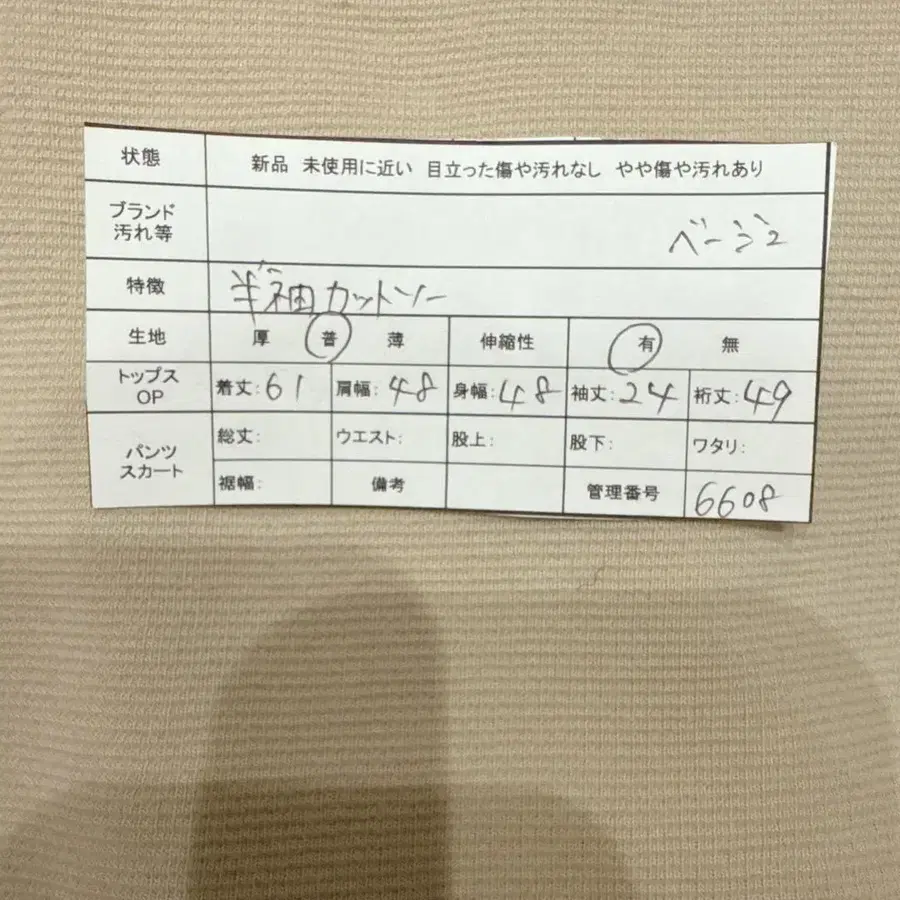 状態 新品 未使用に近い 目立った傷や汚れなし やや傷や汚れあり
ブランド
汚れ等 ベージュ
特徴 半袖カットソー
生地 厚 普 薄 伸縮性 有 無
トップス
OP 着丈:61 肩幅:48 身幅:48 袖丈:24 裄丈:49
パンツ
スカート 総丈: ウエスト: 股上: 股下: ワタリ:
裾幅: 備考 管理番号 6608